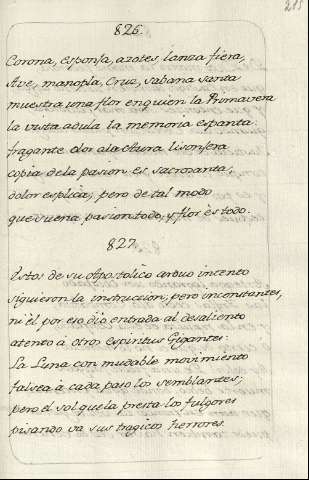 215
826.
Corona, esponja, azotes, lanza fiera,
Ave, manopla, Cruz, sabana santa
muestra una flor en quien la Primavera
la vista adula la memoria espanta.
fragante olor a la chera lisonfera
copia de la pasion es sacrosanta,
dolor esplica, pero de tal modo
que suena pasion todo, y flor es todo.
827.
Estos de su Apostolico arduo intento
siguieron la instruccion, pero inconstantes,
ni èl por eso dio entrada al desaliento
atento à otros espiritus Gigantes:
La Luna con mudable movimiento
falsea à cada paso los semblantes;
pero el sol que la presta los fulgores
pisando va sus tragicos herrores.